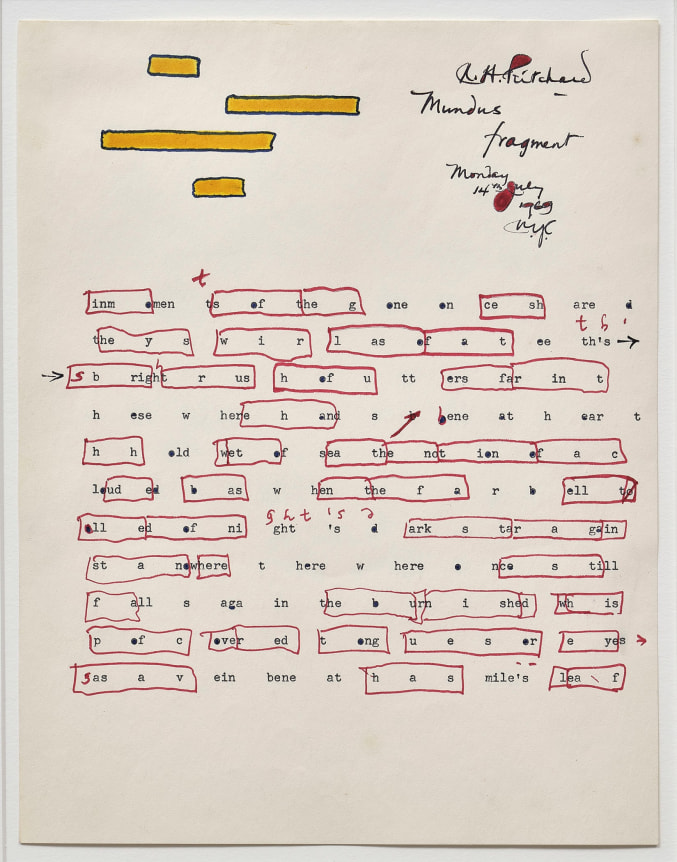 N.H. Pritchard
Mundus
fragment
Monday
14th July
1969
N.Y.C.
t
inm omen ts of the g one on ce sh are d
t h i
the y s w i r l as of a t ee th's →
→ s b right r us h of u tt ers far in t
h ese w here h and s i bene at h ear t
h h old wet of sea the not ion of a c
loud ed b as w hen the f a r b ell to
ll ed of ni ght 's d ark s tar a gain
st a nowhere t here w here o nce s till
f all s aga in the b urn i shed wh is
p of c over ed t ong u e s or e yes →
s as a v ein bene at h a s mile's lea f